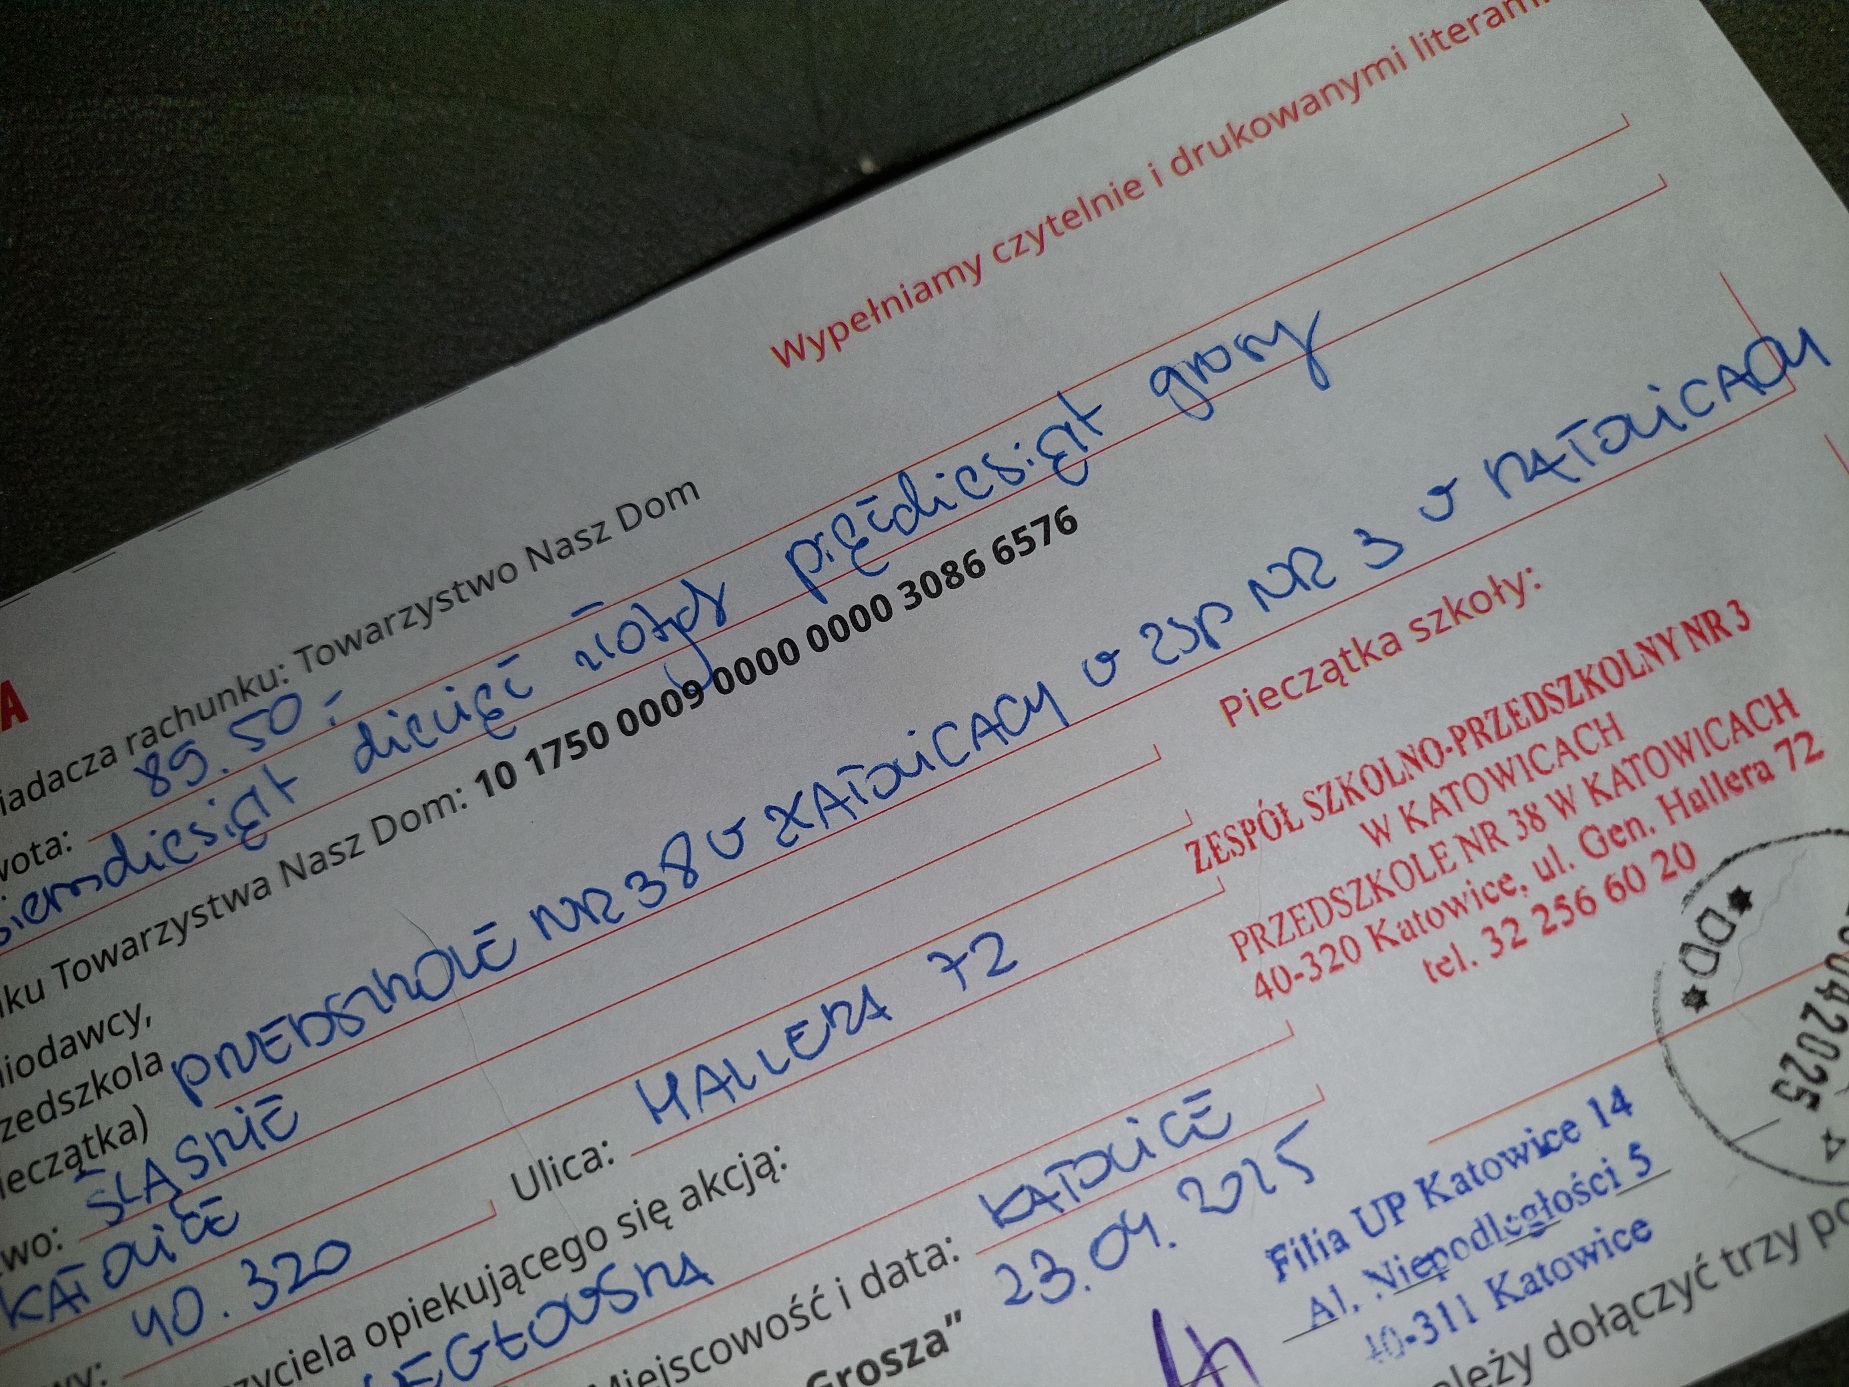 Wypełniamy czytelnie i drukowanymi literami
A
iadacza rachunku: Towarzystwo Nasz Dom
wota: 89.50,-
siemdziesiąt dziewięć złotych pięćdziesiąt groszy
nku Towarzystwa Nasz Dom: 10 1750 0009 0000 0000 3086 6576
niodawcy,
zedszkola
ieczątka)
PRZEDSZKOLE NR 38 W KATOWICACH W ZSP NR 3 W KATOWICACH
Pieczątka szkoły:
ZESPÓŁ SZKOLNO-PRZEDSZKOLNY NR 3
W KATOWICACH
PRZEDSZKOLE NR 38 W KATOWICACH
40-320 Katowice, ul. Gen. Hallera 72
tel. 32 256 60 20
two: ŚLĄSKIE
KATOWICE
Ulica: HALLERA 72
wy: 40.320
zyciela opiekującego się akcją:
EGŁOWSKA
Miejscowość i data: KATOWICE
23.04.2025
Grosza”
042025
DD
Filia UP Katowice 14
Al. Niepodległości 5
40-311 Katowice
ależy dołączyć trzy po